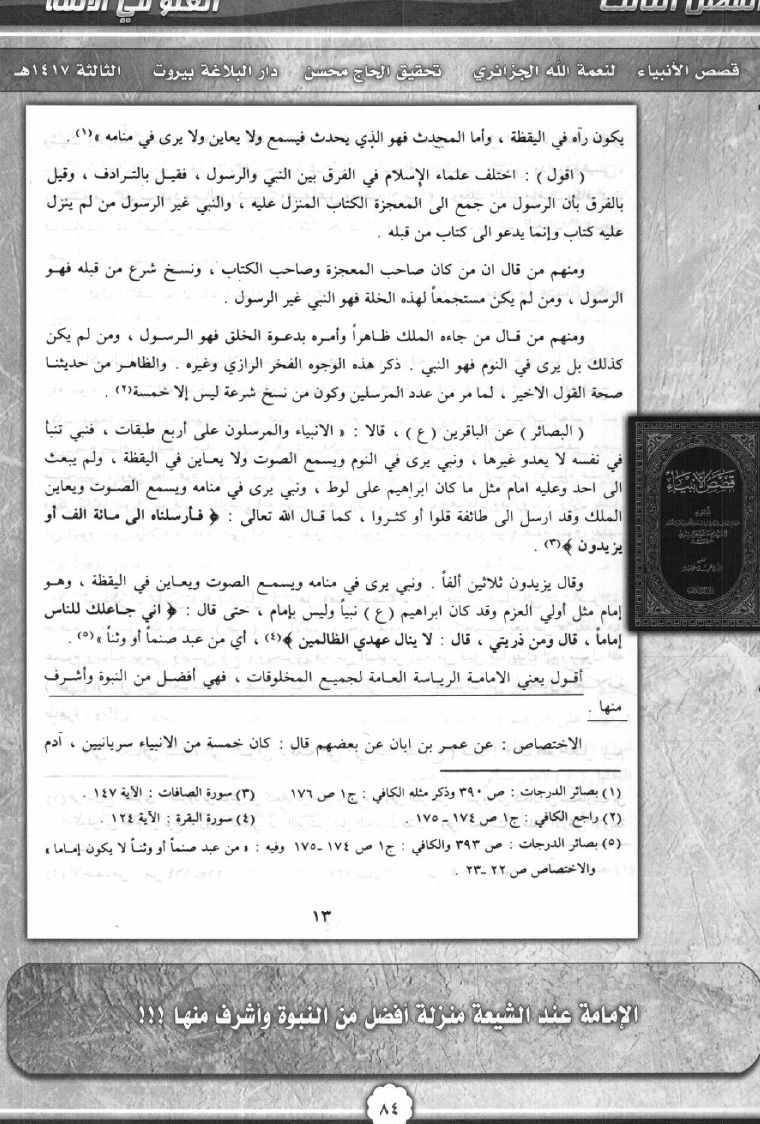 الفصل الثالث
الغلو في الأئمة
قصص الأنبياء لنعمة الله الجزائري تحقيق الحاج محسن دار البلاغة بيروت الثالثة ١٤١٧هـ
يكون رآه في اليقظة ، وأما المحدث فهو الذي يحدث فيسمع ولا يعاين ولا يرى في منامه »(١) .
( اقول ) : اختلف علماء الإسلام في الفرق بين النبي والرسول ، فقيـل بالتـرادف ، وقيل
بالفرق بأن الرسول من جمع الى المعجزة الكتاب المنزل عليه ، والنبي غير الرسول من لم ينزل
عليه كتاب وإنما يدعو الى كتاب من قبله .
ومنهم من قال ان من كان صاحب المعجزة وصاحب الكتاب ، ونسـخ شرع من قبله فهـو
الرسول ، ومن لم يكن مستجمعاً لهذه الخلة فهو النبي غير الرسول .
ومنهم من قـال من جاءه الملك ظـاهراً وأمـره بدعـوة الخلق فهو الـرسـول ، ومن لم يكن
كذلك بل يرى في النوم فهو النبي . ذكر هذه الوجوه الفخر الرازي وغيره . والظاهـر من حديثنـا
صحة القول الاخير ، لما مر من عدد المرسلين وكون من نسخ شرعة ليس إلا خمسة(٢) .
( البصائر ) عن الباقرين ( ع ) ، قالا : « الانبياء والمرسلون على أربع طبقات ، فنبي تنبأ
في نفسه لا يعدو غيرها ، ونبي يرى في النوم ويسمع الصوت ولا يعـاين في اليقظة ، ولم يبعث
الى احد وعليه امام مثل ما كان ابراهيم على لوط ، ونبي يرى في منامه ويسمع الصـوت ويعاين
الملك وقد ارسل الى طائفة قلوا أو كثـروا ، كما قـال الله تعالى : ﴿ فـأرسلناه الى مـائة الف أو
يزيدون ﴾(٣) .
وقال يزيدون ثلاثين ألفاً . ونبي يرى في منامه ويسمـع الصوت ويعـاين في اليقظة ، وهـو
إمام مثل أولي العزم وقد كان ابراهيم ( ع ) نبياً وليس بإمام ، حتى قال : ﴿ اني جـاعلك للناس
إماماً ، قال ومن ذريتي ، قال : لا ينال عهدي الظالمين ﴾(٤) ، أي من عبد صنماً أو وثناً »(٥) .
أقـول يعني الامامـة الرياسـة العامـة لجميـع المخلوقات ، فهي أفضـل من النبوة وأشـرف
منها .
الاختصاص : عن عمـر بن ابان عن بعضهم قال : كان خمسة من الانبياء سريانيين ، آدم
(١) بصائر الدرجات : ص ٣٩٠ وذكر مثله الكافي : ج١ ص ١٧٦ (٣) سورة الصافات : الآية ١٤٧ .
(٢) راجع الكافي : ج١ ص ١٧٤ ـ ١٧٥ . (٤) سورة البقرة : الآية ١٢٤ .
(٥) بصائر الدرجات : ص ٣٩٣ والكافي : ج١ ص ١٧٤ ـ١٧٥ وفيه : « من عبد صنماً أو وثنـاً لا يكون إمـاما »
والاختصاص ص ٢٢ ـ٢٣ .
١٣
قصص الأنبياء
الإمامة عند الشيعة منزلة أفضل من النبوة وأشرف منها !!!
٨٤